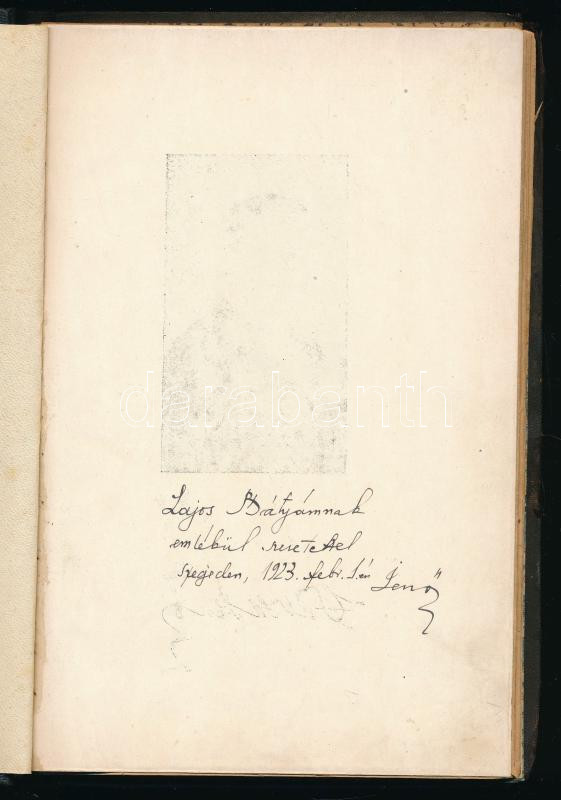 darabanth
Lajos Bátyámnak
emlékül szeretettel
Szegeden, 1923. febr. 1.én Jenő